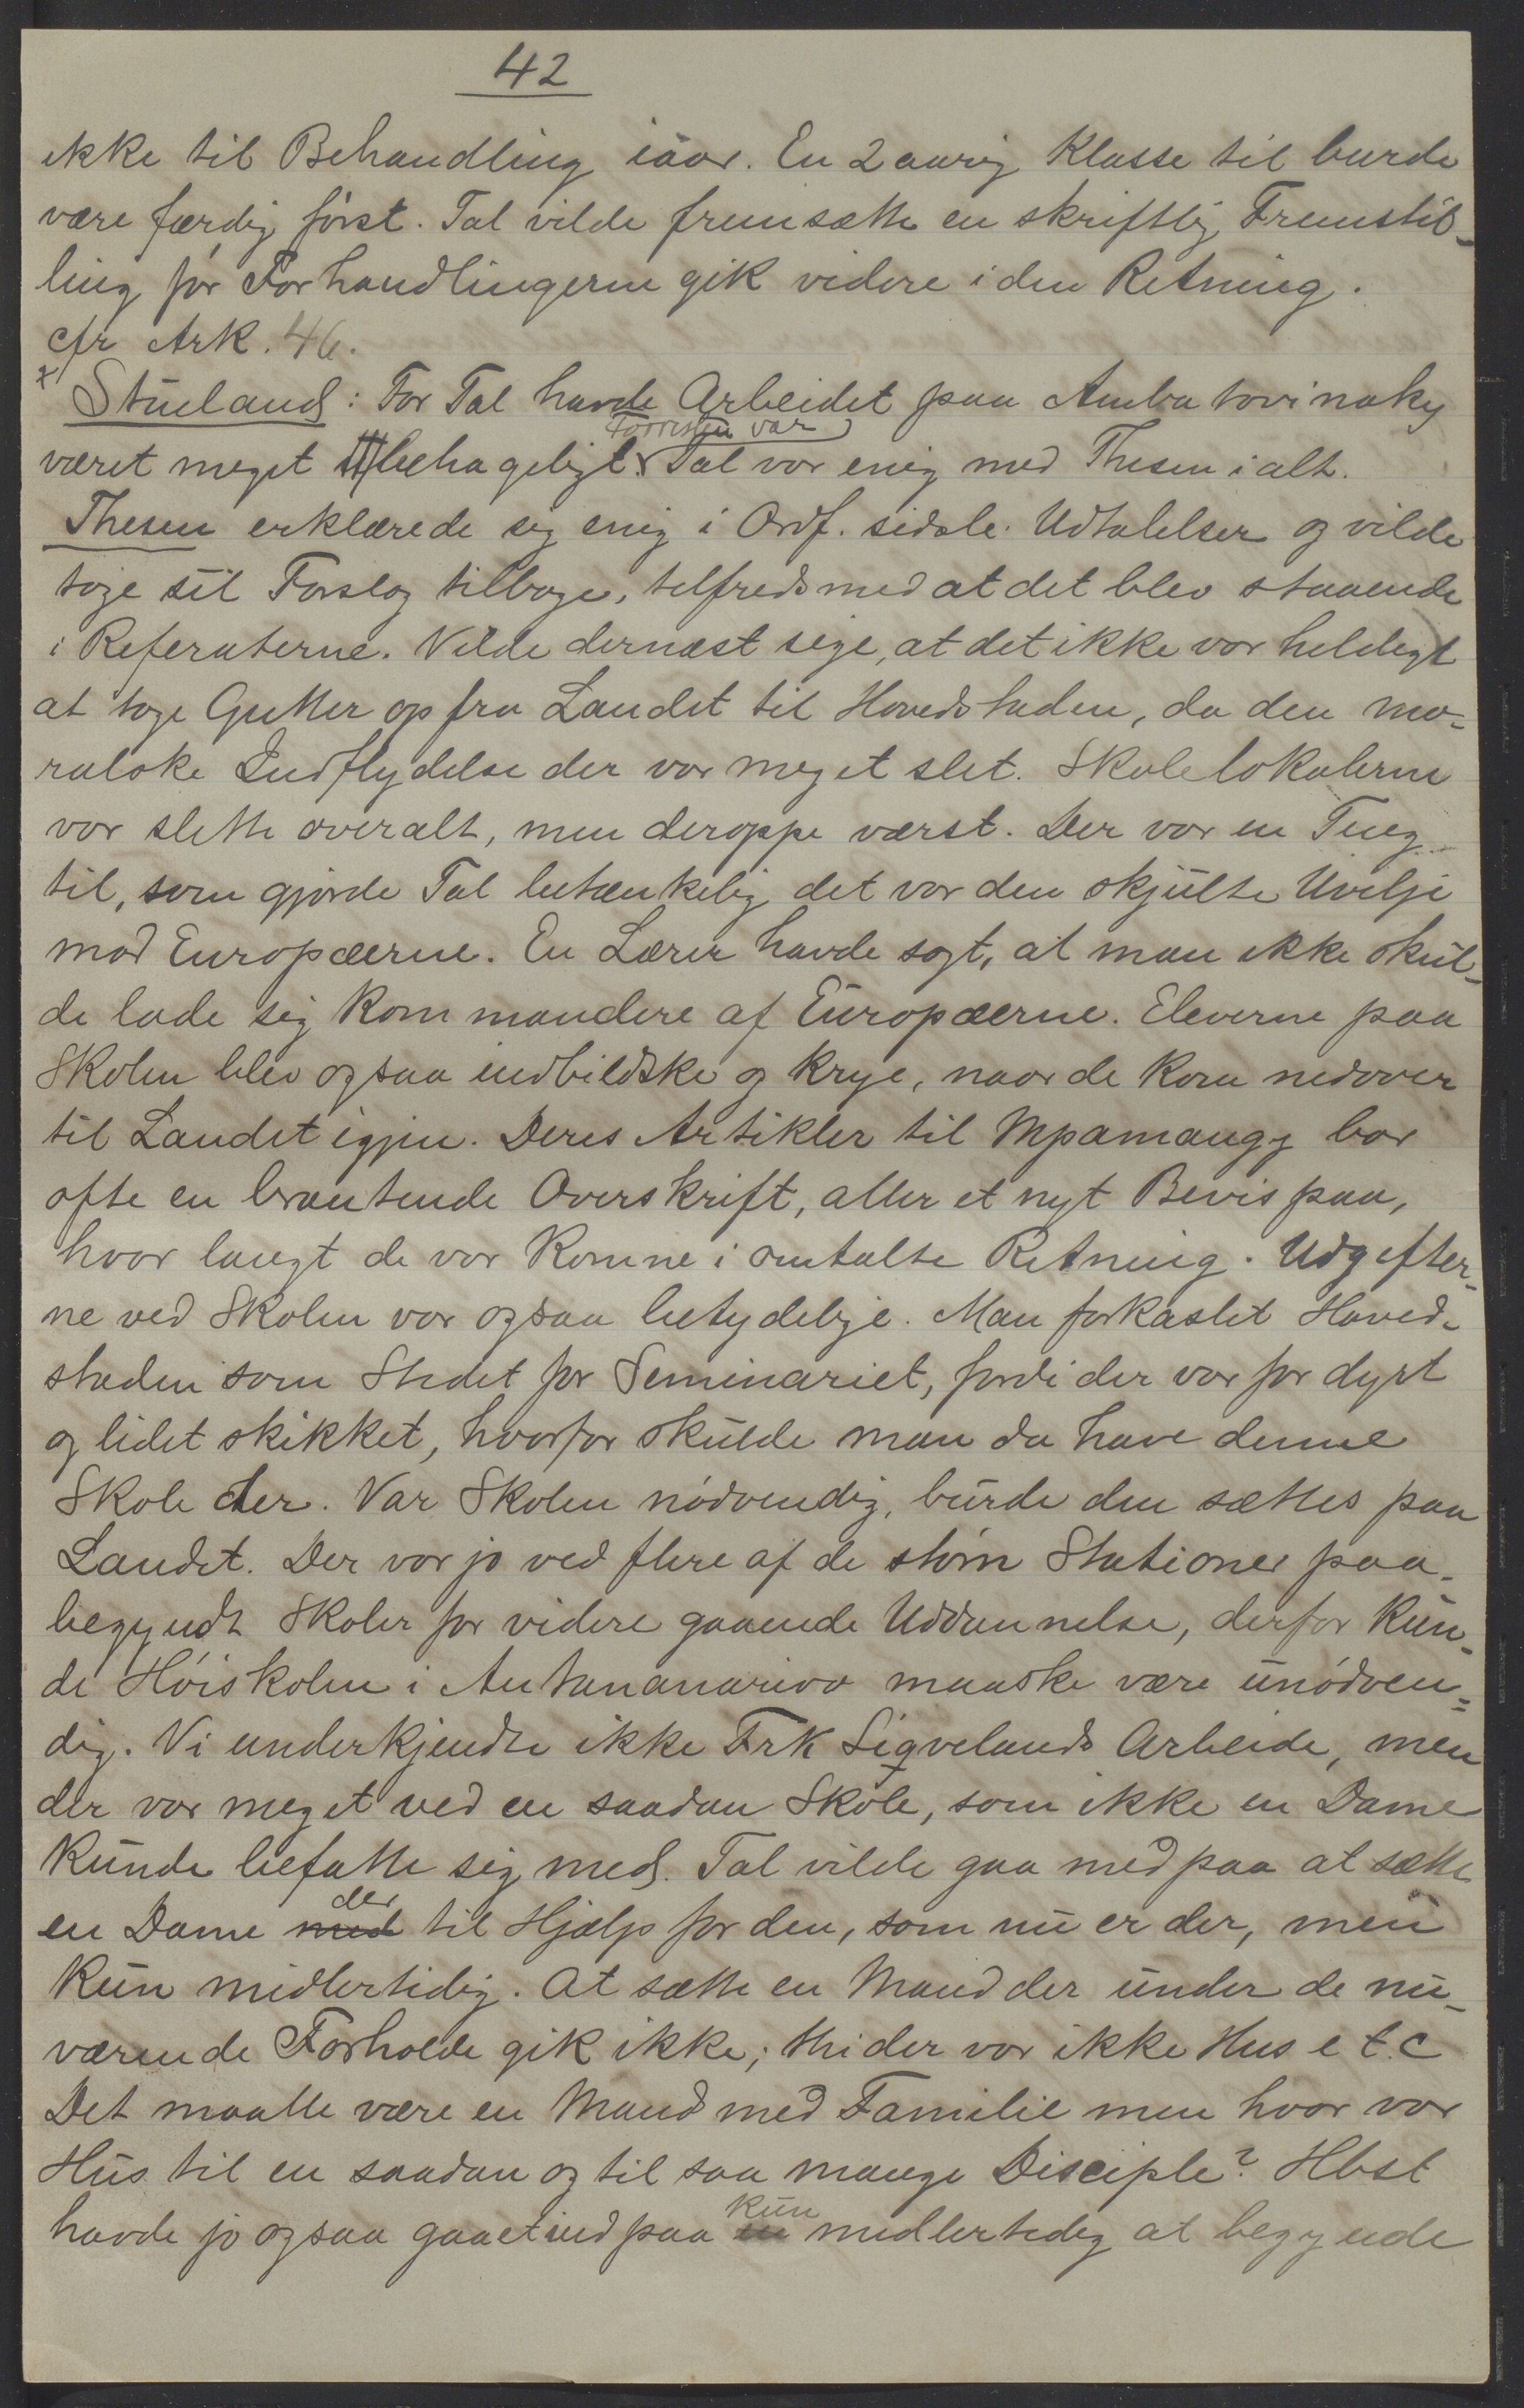 42
ikke til Behandling iaar. En 2 aarig Klasse til burde
være færdig först. Tal vilde fremsætte en skriftlig Fremstil-
ling før Forhandlingerne gik videre i den Retning.
cfr Ark. 46.
x Stueland: For Tal havde Arbeidet paa Ambatovinaky
Forresten var
været meget behageligt. Tal var enig med Thesen i alt.
Thesen erklærede sig enig i Ordf. sidste Udtalelser og vilde
tage sit Forslag tilbage, tilfreds med at det blev staaende
i Referaterne. Vilde dernæst sige, at det ikke var heldigt
at tage Gutter op fra Landet til Hovedstaden, da den mo-
ralske Indflydelse der var meget slet. Skolelokalerne
var slette overalt, men deroppe værst. Der var en Ting
til, som gjorde Tal betænkelig, det var den skjulte Uvilje
mod Europæerne. En Lærer havde sagt, at man ikke skul-
de lade sig kommandere af Europæerne. Eleverne paa
Skolen blev ogsaa indbildske og krye, naar de kom nedover
til Landet igjen. Deres Artikler til Mpamangy bar
ofte en brautende Overskrift, atter et nyt Bevis paa,
hvor langt de var komne i omtalte Retning. Udgifter-
ne ved Skolen var ogsaa betydelige. Man forkastet Hoved-
staden som Stedet for Seminariet, fordi der var for dyrt
og lidet skikket, hvorfor skulde man da have denne
Skole der. Var Skolen nödvendig, burde den sættes paa
Landet. Der var jo ved flere af de större Stationer paa-
begyndt Skoler for videre gaaende Uddannelse, derfor kun-
de Höiskolen i Antananarivo maaske være unödven-
dig. Vi underkjendte ikke Frk Sigvelands Arbeide, men
der var meget ved en saadan Skole, som ikke en Dame
kunde befatte sig med. Tal vilde gaa med paa at sætte
der
en Dame med til Hjælp for den, som nu er der, men
kun midlertidig. At sætte en Mand der under de nu-
værende Forholde gik ikke; thi der var ikke Hus etc
Det maatte være en Mand med Familie men hvor var
Hus til en saadan og til saa mange Disciple? Hbst
kun
havde jo ogsaa gaaet ind paa en midlertidig at begynde